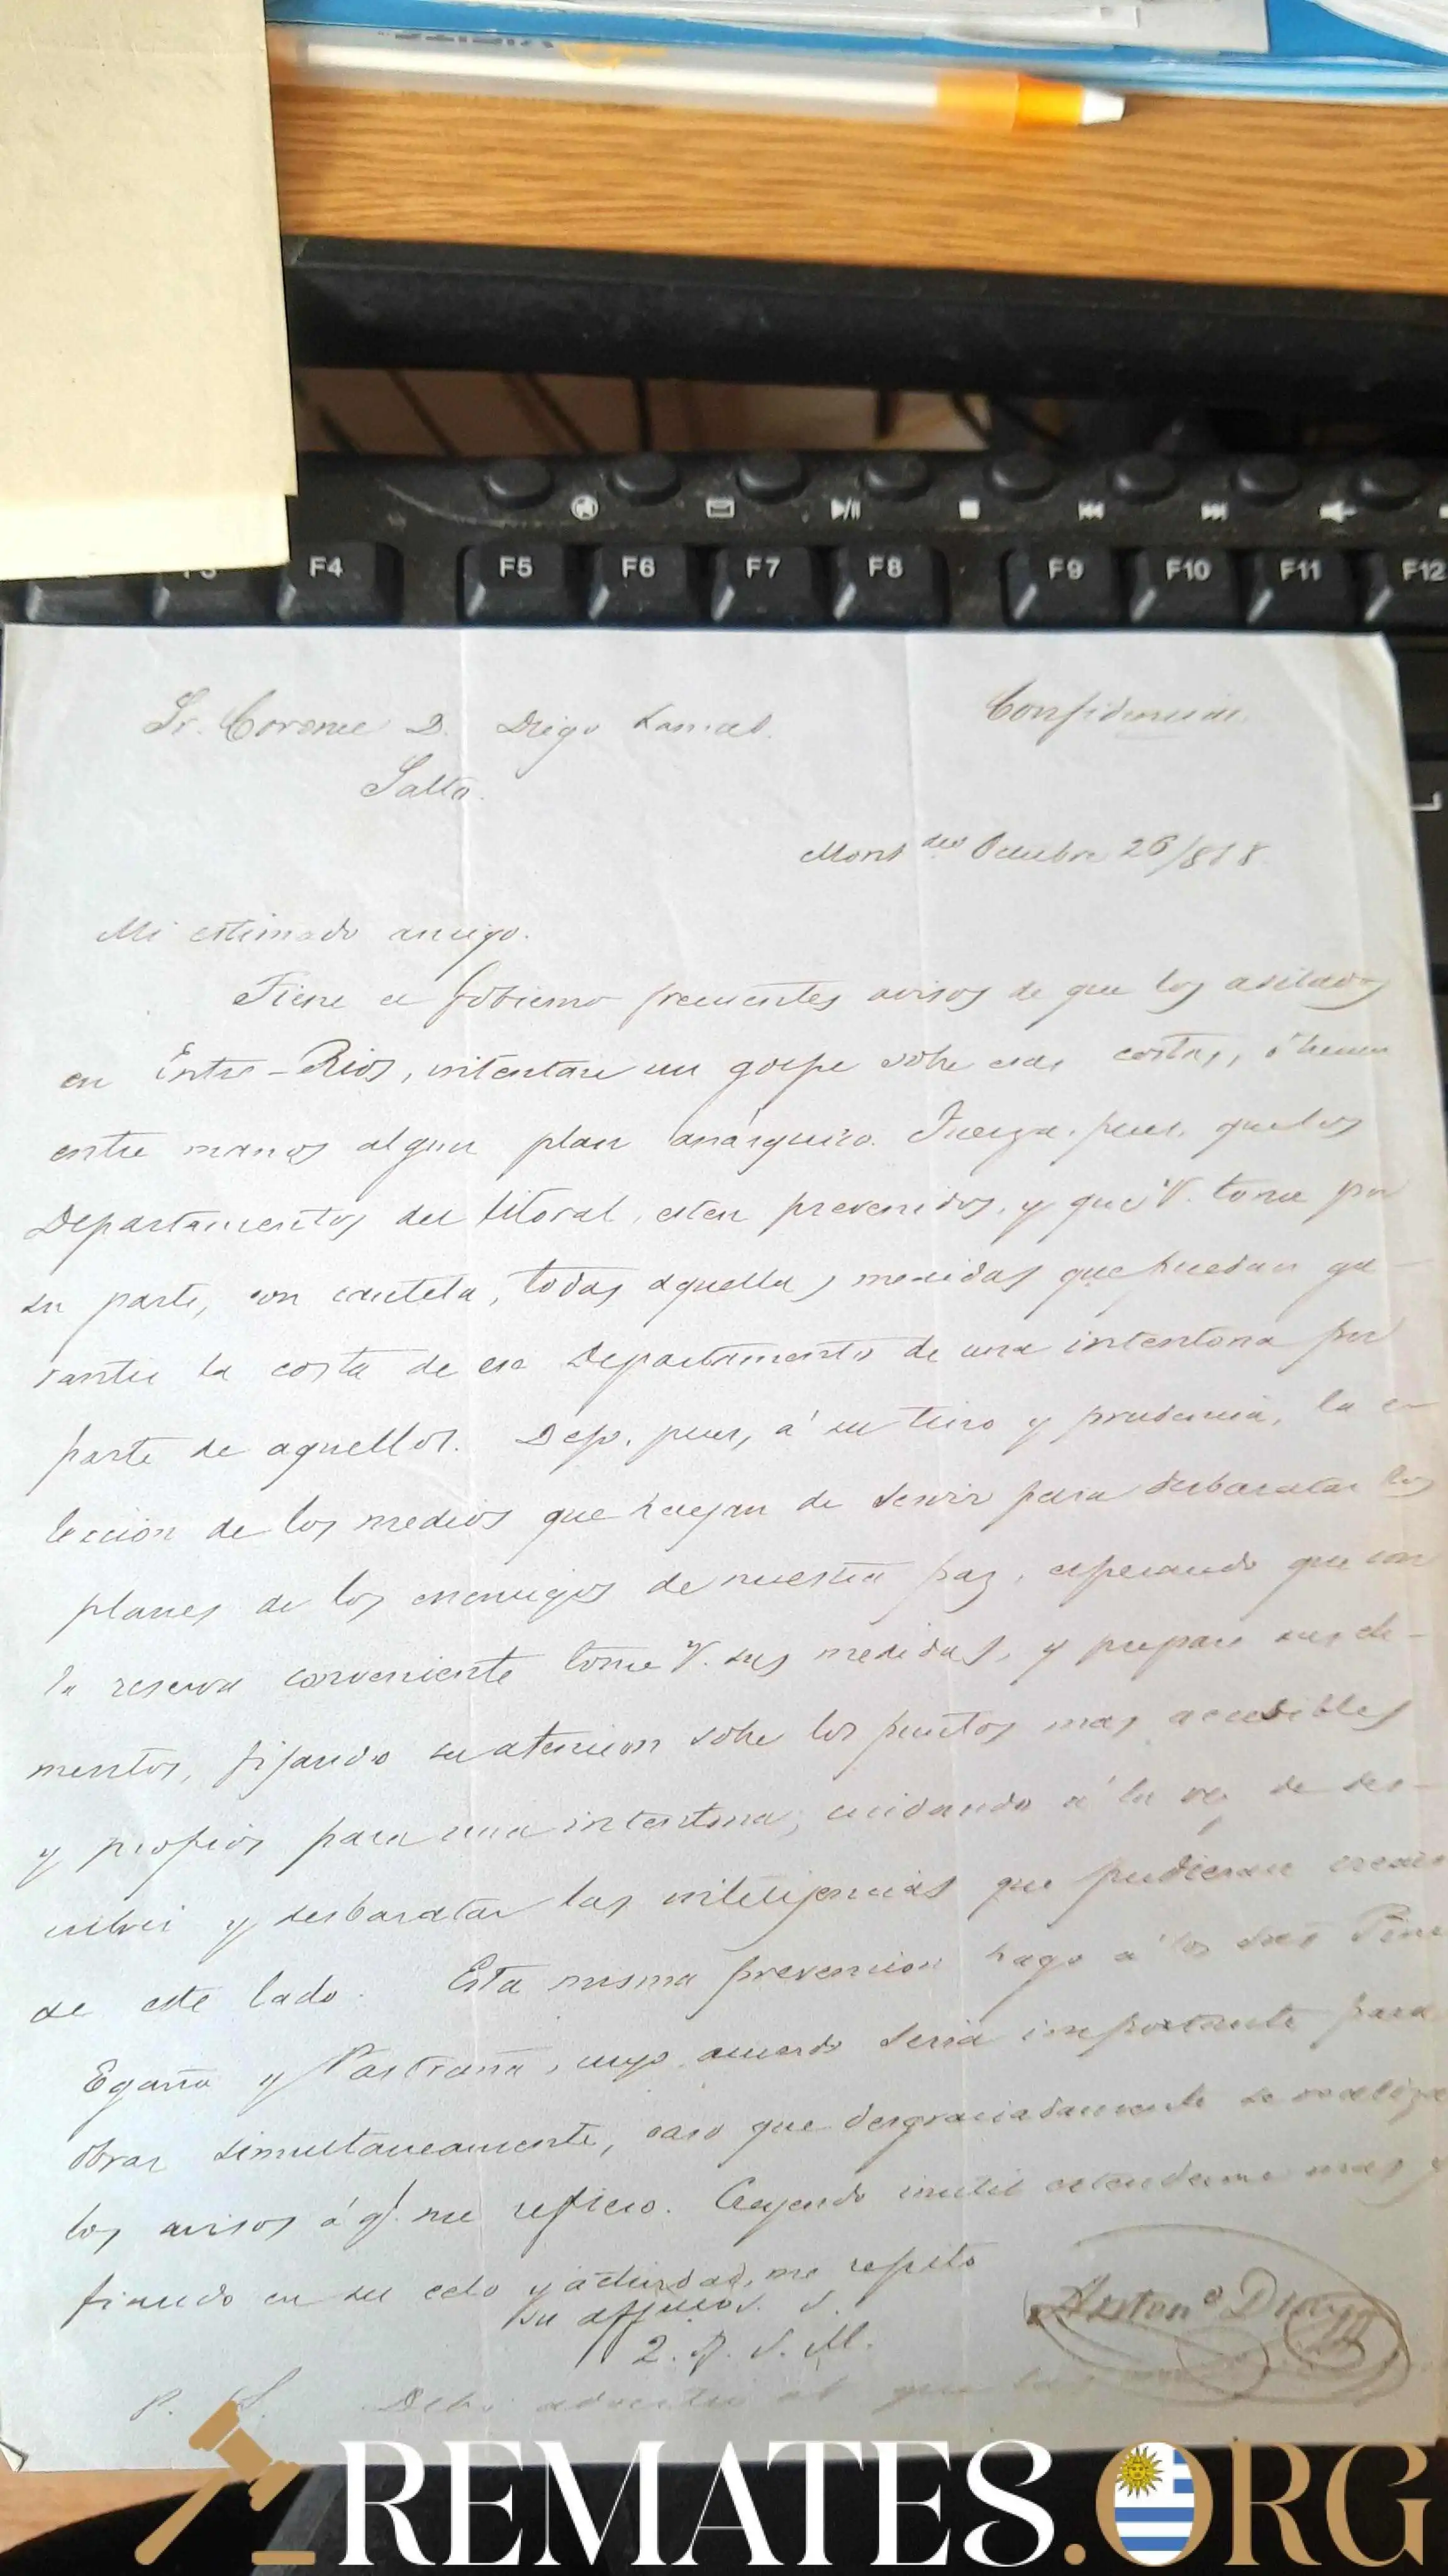 F4 F5 F6 F7 F8 F9 F10 F11 F12
Confidencial
Sr. Coronel D. Diego Lamas.
Salto.
Mont deo Octubre 26/858
Mi estimado amigo.
Tiene el Gobierno frecuentes avisos de que los asilados
en Entre-Rios, intentan un golpe sobre esas costas, ó tienen
entre manos algun plan anárquico. Fuerza, pues, que los
Departamentos del litoral, esten prevenidos, y que V. tome por
su parte, con cautela, todas aquellas medidas que puedan ga-
rantir la costa de ese Departamento de una intentona por
parte de aquellos. Dejo, pues, á su tino y prudencia, la e-
leccion de los medios que hayan de servir para desbaratar los
planes de los enemigos de nuestra paz, esperando que con
la reserva conveniente tome V. sus medidas, y prepare sus ele-
mentos, fijando su atencion sobre los puntos mas accesibles
y propios para una intentona, cuidando á la vez de des-
cubrir y desbaratar las intelijencias que pudieran crearse
de este lado. Esta misma prevencion hago á los Sres
Egaña y Pastrana, cuyo acuerdo seria importante para
obrar simultaneamente, caso que desgraciadamente se realize
los avisos á q.e me refiero. Creyendo inutil estenderme mas y
fiando en su celo y actividad, me repito
su affmo S. S.
Q. B. S. M.
Anton.o Diaz
P. S. Debo advertir
REMATES.ORG